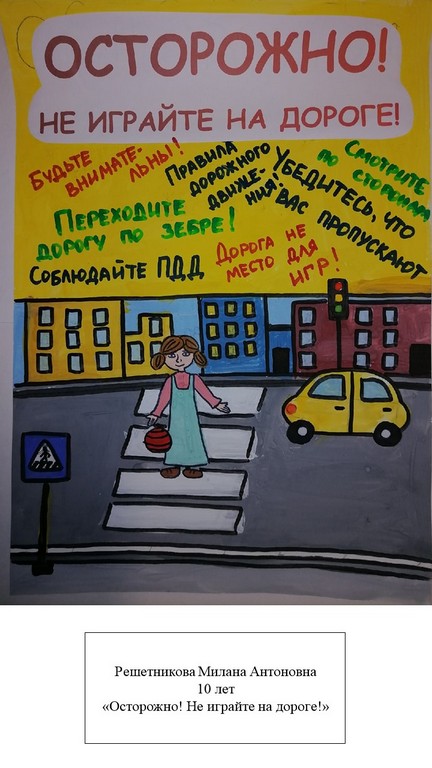 ОСТОРОЖНО!
НЕ ИГРАЙТЕ НА ДОРОГЕ!
БУДЬТЕ
ВНИМАТЕ-
ЛЬНЫ!
ПРАВИЛА
ДОРОЖНОГО
ДВИЖЕ-
НИЯ!
УБЕДИТЕСЬ, ЧТО
ВАС ПРОПУСКАЮТ
СМОТРИТЕ
ПО СТОРОНАМ
ПЕРЕХОДИТЕ
ДОРОГУ ПО ЗЕБРЕ!
СОБЛЮДАЙТЕ ПДД
ДОРОГА НЕ
МЕСТО ДЛЯ
ИГР!
Решетникова Милана Антоновна
10 лет
«Осторожно! Не играйте на дороге!»